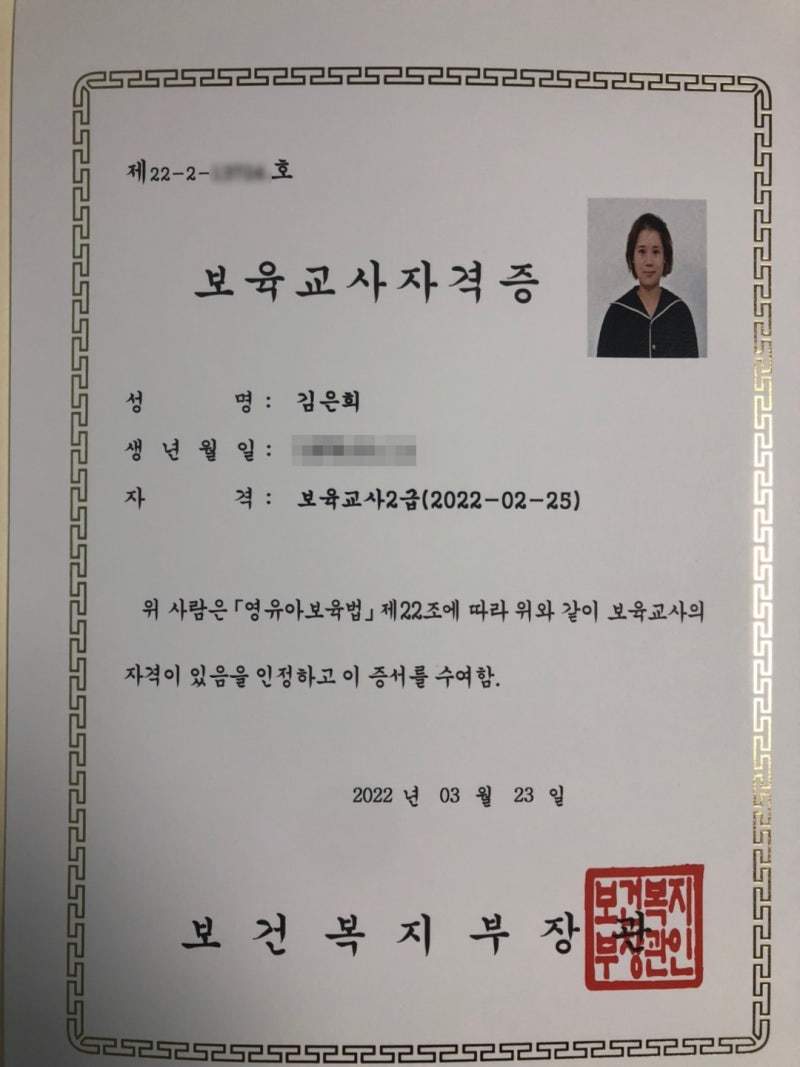 제22-2-호
보육교사자격증
성 명 : 김은희
생 년 월 일 :
자 격 : 보육교사2급(2022-02-25)
위 사람은 「영유아보육법」 제22조에 따라 위와 같이 보육교사의
자격이 있음을 인정하고 이 증서를 수여함.
2022 년 03 월 23 일
보 건 복 지 부 장 관
보건복지
부장관인